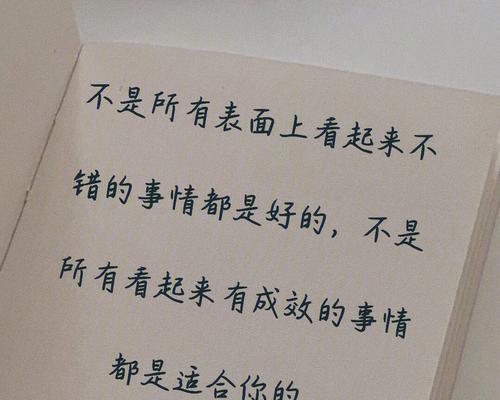 不是所有表面上看起来不
错的事情都是好的，不是
所有看起来有成效的事情
都是适合你的